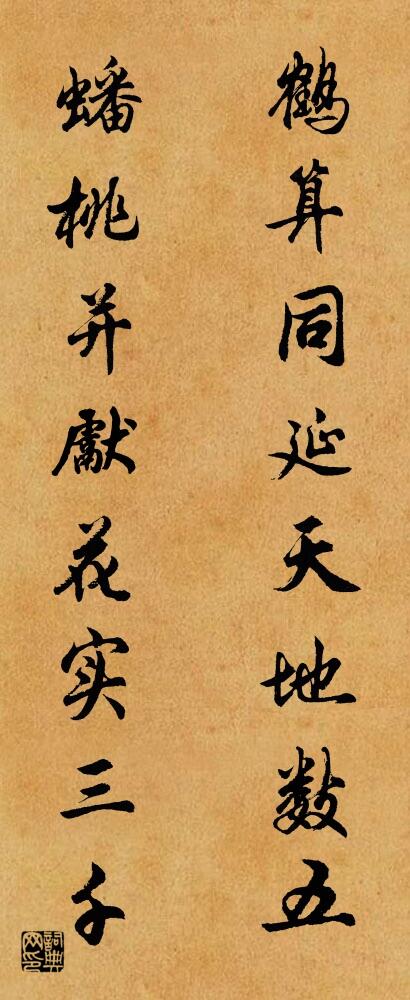 鶴算同延天地数五
蟠桃并獻花实三千
詞典网印